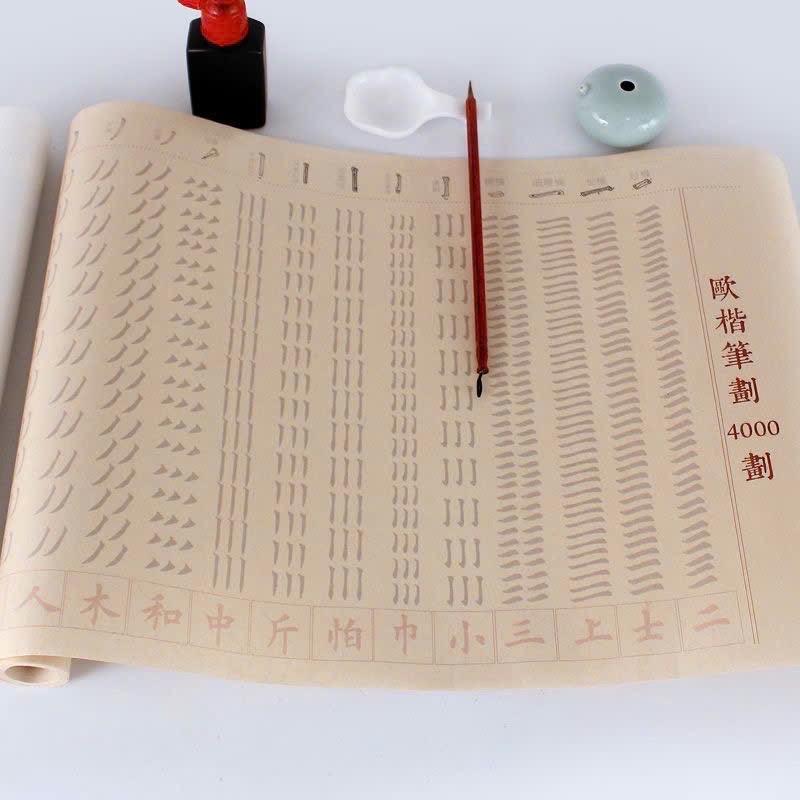 歐楷筆劃4000劃
二
士
上
三
小
巾
怕
斤
中
和
木
人